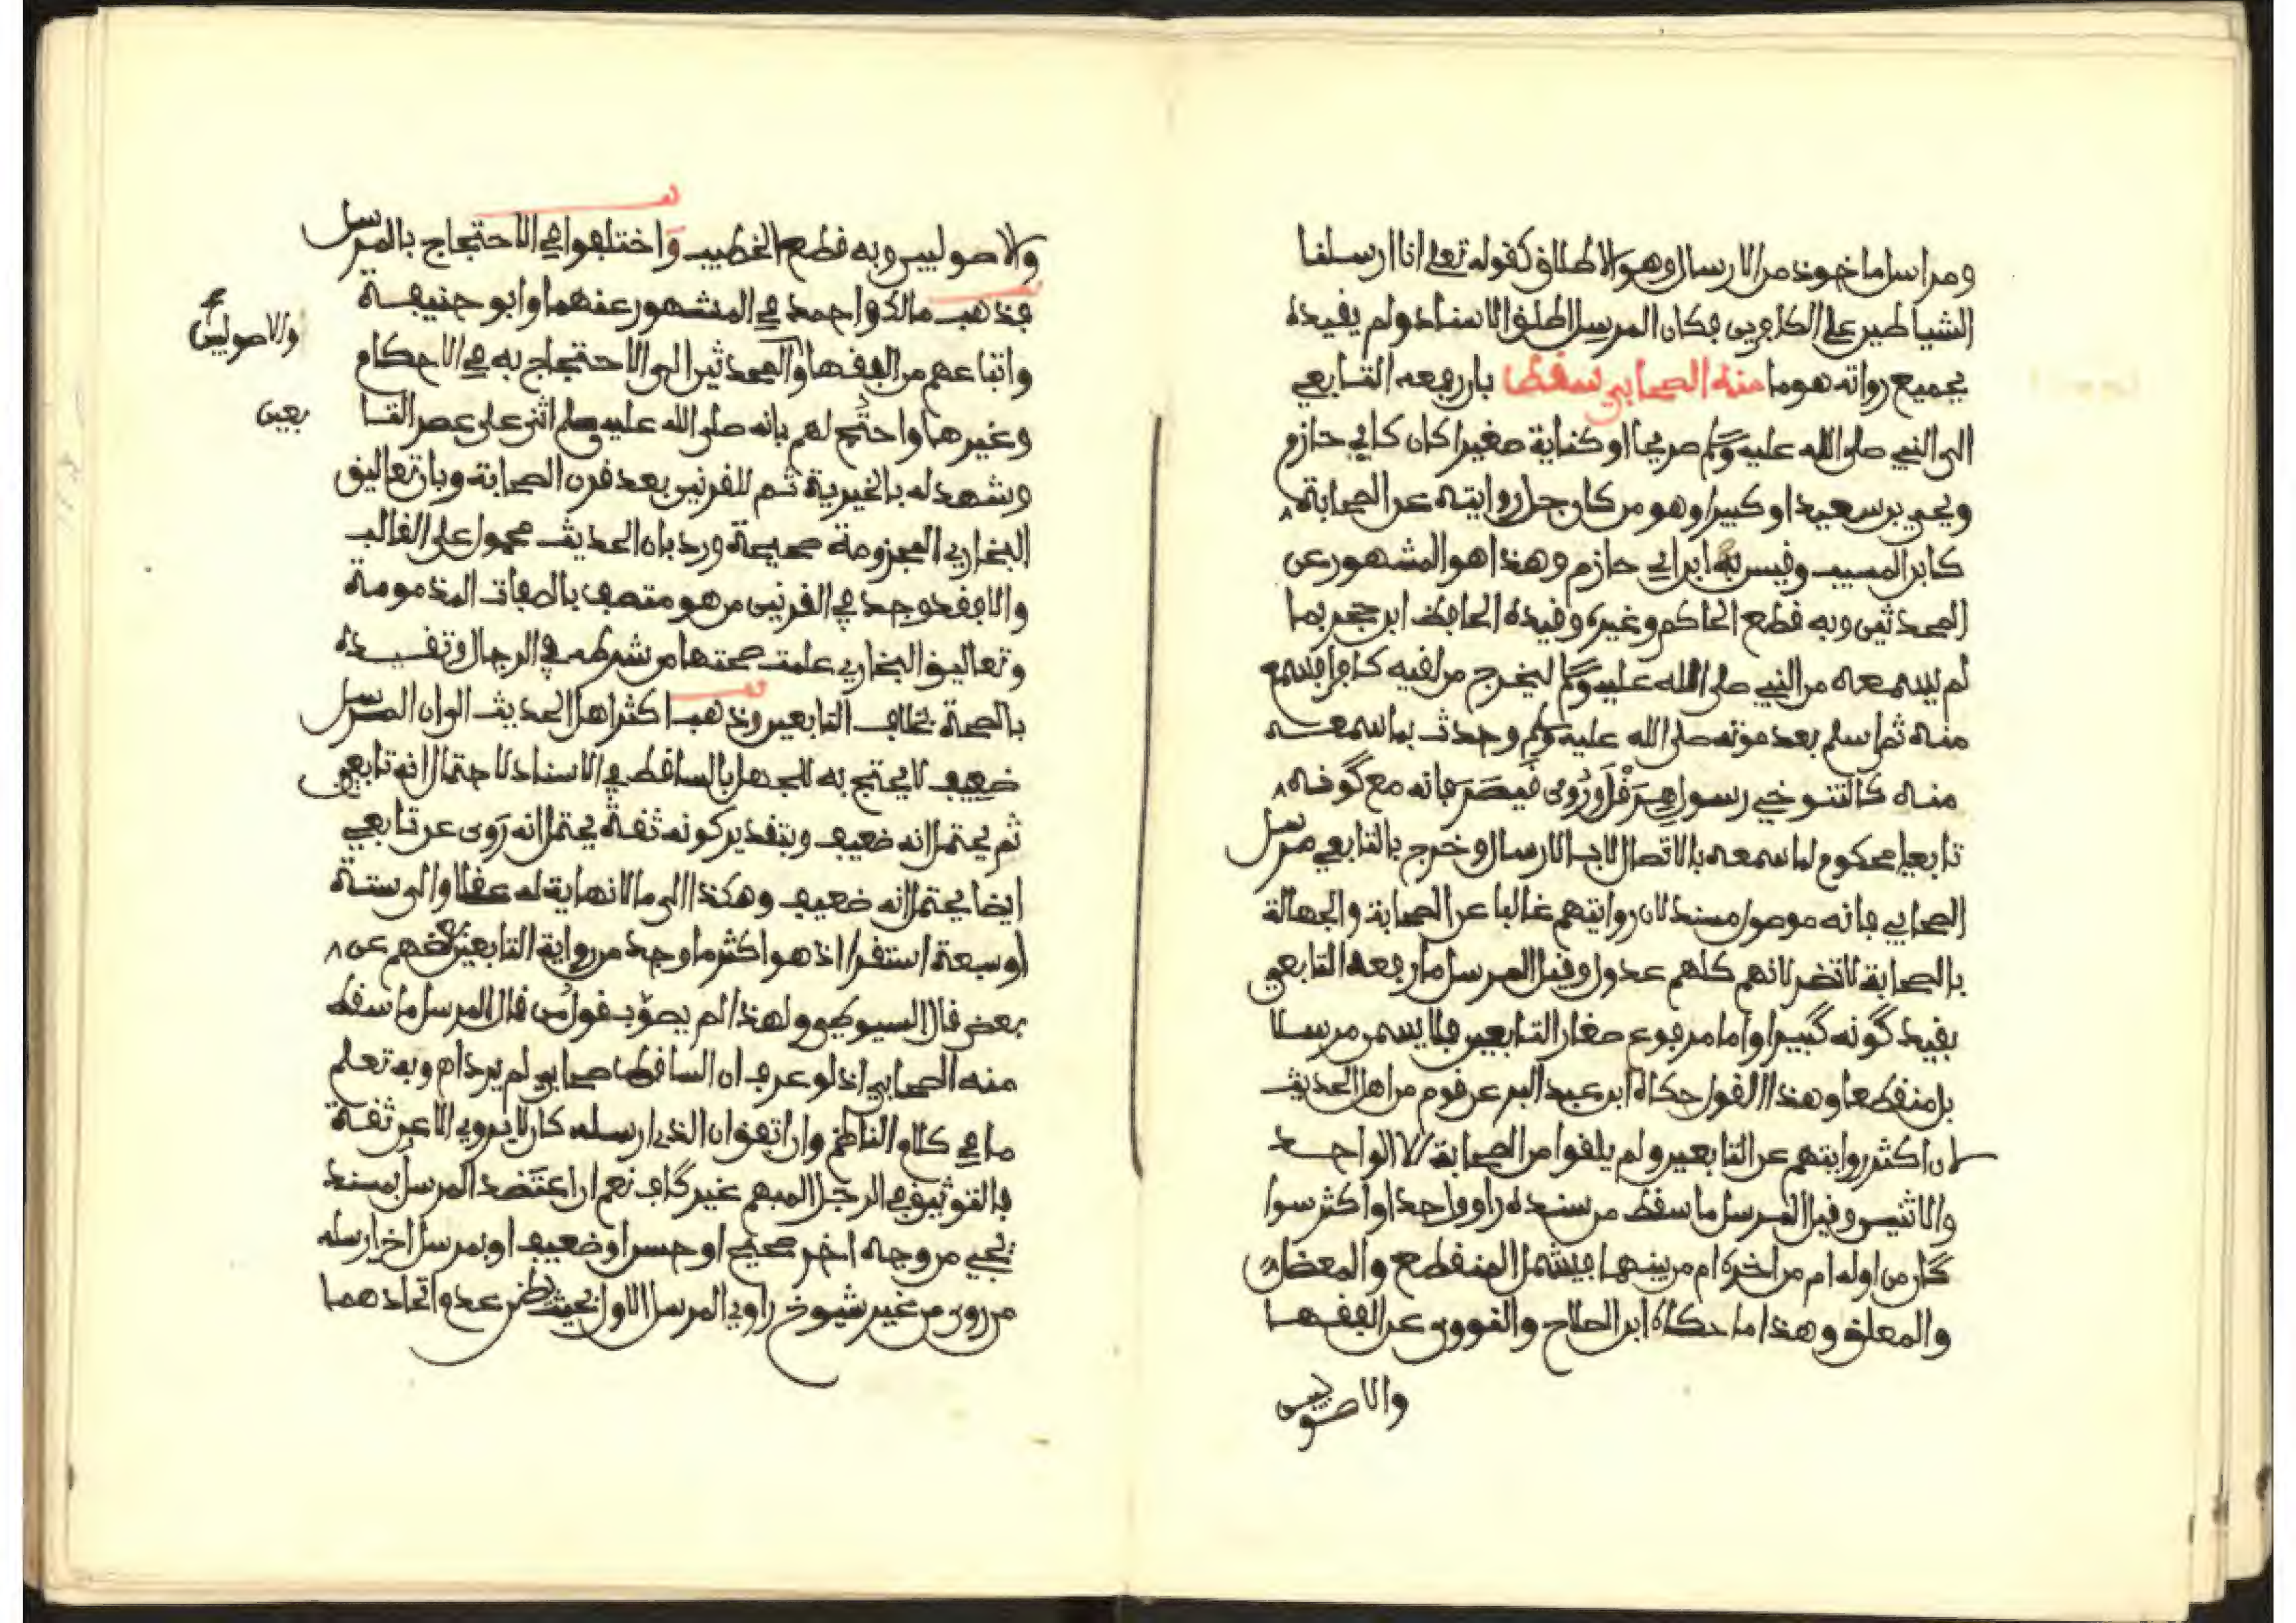 ومراسل ماخوذ من الارسال وهو الاطلاق كقوله تعلى انا ارسلنا
الشياطين على الكافرين فكان المرسل اطلق الاسناد ولم يقيده
بجميع رواته هو ما منه الصحابي سقط بان رفعه التابعي
الى النبي صلى الله عليه وسلم صريحا او كناية صغيرا كان كابي حازم
ويحيى بن سعيد او كبيرا وهو من كان جل روايته عن الصحابة
كابن المسيب وقيس ابن ابي حازم وهذا هو المشهور عن
المحدثين وبه قطع الحاكم وغيره وقيده الحافظ ابن حجر بما
لم يسمعه من النبي صلى الله عليه وسلم ليخرج من لقيه كافرا فسمع
منه ثم اسلم بعد موته صلى الله عليه وسلم وحدث بما سمعه
منه كالتنوخي رسول هِرَقْل وَرُوِى قَيصَرَ فانه مع كونه
تابعيا محكوم لما سمعه بالاتصال لا بالارسال وخرج بالتابعي مرسل
الصحابي فانه موصول مسند لان روايتهم غالبا عن الصحابة والجهالة
بالصحابة لا تضر لانهم كلهم عدول وقيل المرسل ما رفعه التابعي
بقيد كونه كبيرا واما مرفوع صغار التابعين فلا يسمى مرسلا
بل منقطعا وهذا القول حكاه ابن عبد البر عن قوم من اهل الحديث
لان اكثر روايتهم عن التابعين ولم يلقوا من الصحابة الا الواحد
والاثنين وقيل المرسل ما سقط من سنده راو واحد او اكثر سوا
كان من اوله ام من اخره ام من بينهما فيشمل المنقطع والمعضل
والمعلق وهذا ما حكاه ابن الصلاح والنووي عن الفقها
والاصوليين
والاصوليين وبه قطع الخطيب واختلفوا في الاحتجاج بالمرسل
فذهب مالك واحمد في المشهور عنهما وابو حنيفة
واتباعهم من الفقها والمحدثين الى الاحتجاج به في الاحكام
والاصوليين
وغيرهما واحتُج لهم بانه صلى الله عليه وسلم اثنى على عصر التا
بعين
وشهد له بالخيرية ثم للقرنين بعد قرن الصحابة وبان تعاليق
البخاري المجزومة صحيحة ورد بان الحديث محمول على الغالب
والا فقد وجد في القرنين من هو متصف بالصفات المذمومة
وتعاليق البخاري علمت صحتها من شرطه في الرجال وتقييده
بالصحة بخلاف التابعين وذهب اكثر اهل الحديث الى ان المرسل
ضعيف لا يحتج به للجهل بالساقط في الاسناد لاحتمال انه تابعي
ثم يحتمل انه ضعيف وبتقدير كونه ثقة يحتمل انه رَوى عن تابعي
ايضا يحتمل انه ضعيف وهكذا الى ما لا نهاية له عقلا والى ستة
او سبعة استقرا اذ هو اكثر ما وجد من رواية التابعين بعضهم عن
بعض قال السيوطي ولهذا لم يصوّب قول من قال المرسل ما سقط
منه الصحابي اذ لو عرف ان الساقط صحابي لم يرد اه وبه تعلم
ما في كلام الناظم وان اتفق ان الذي ارسله كان لا يروي الا عن ثقة
فالتوثيق في الرجل المبهم غير كاف نعم ان اعتضد المرسل بمسند
يجي من وجه اخر صحيح او حسن او ضعيف او بمرسل اخر ارسله
من روى من غير شيوخ راوي المرسل الاول بحيث يظن عدم اتحادهما